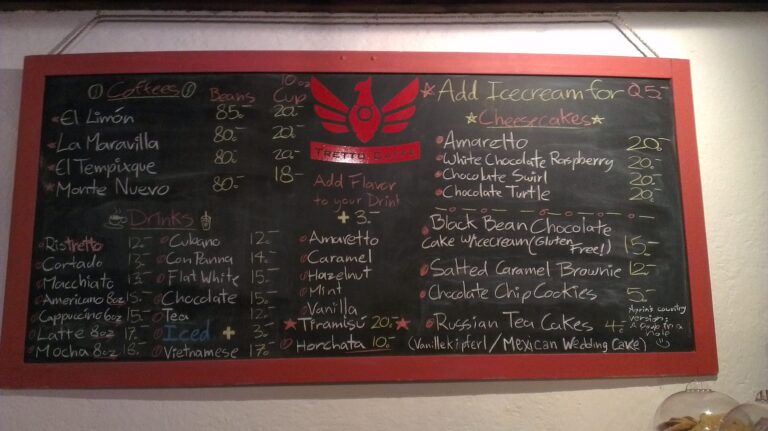 Coffees Beans 10 oz Cup
El Limón 85.- 20.-
La Maravilla 80.- 20.-
El Tempixque 80.- 20.-
Monte Nuevo 80.- 18.-
Drinks
Ristretto 12.-
Cortado 13.-
Macchiato 13.-
Americano 8oz 15.-
Cappuccino 6oz 15.-
Latte 8oz 17.-
Mocha 8oz 18.-
Cubano 12.-
Con Panna 14.-
Flat White 15.-
Chocolate 15.-
Tea 12.-
Iced + 3.-
Vietnamese 17.-
Tretto Caffè
Add Flavor
to your Drink
+ 3.-
Amaretto
Caramel
Hazelnut
Mint
Vanilla
Tiramisú 20.-
Horchata 10.-
Add Icecream for Q5.-
Cheesecakes
Amaretto 20.-
White Chocolate Raspberry 20.-
Chocolate Swirl 20.-
Chocolate Turtle 20.-
Black Bean Chocolate
Cake w/icecream (Gluten Free!) 15.-
Salted Caramel Brownie 12.-
Chocolate Chip Cookies 5.-
Russian Tea Cakes 4.-
(Vanillekipferl / Mexican Wedding Cake)
country
version:
in a
hole